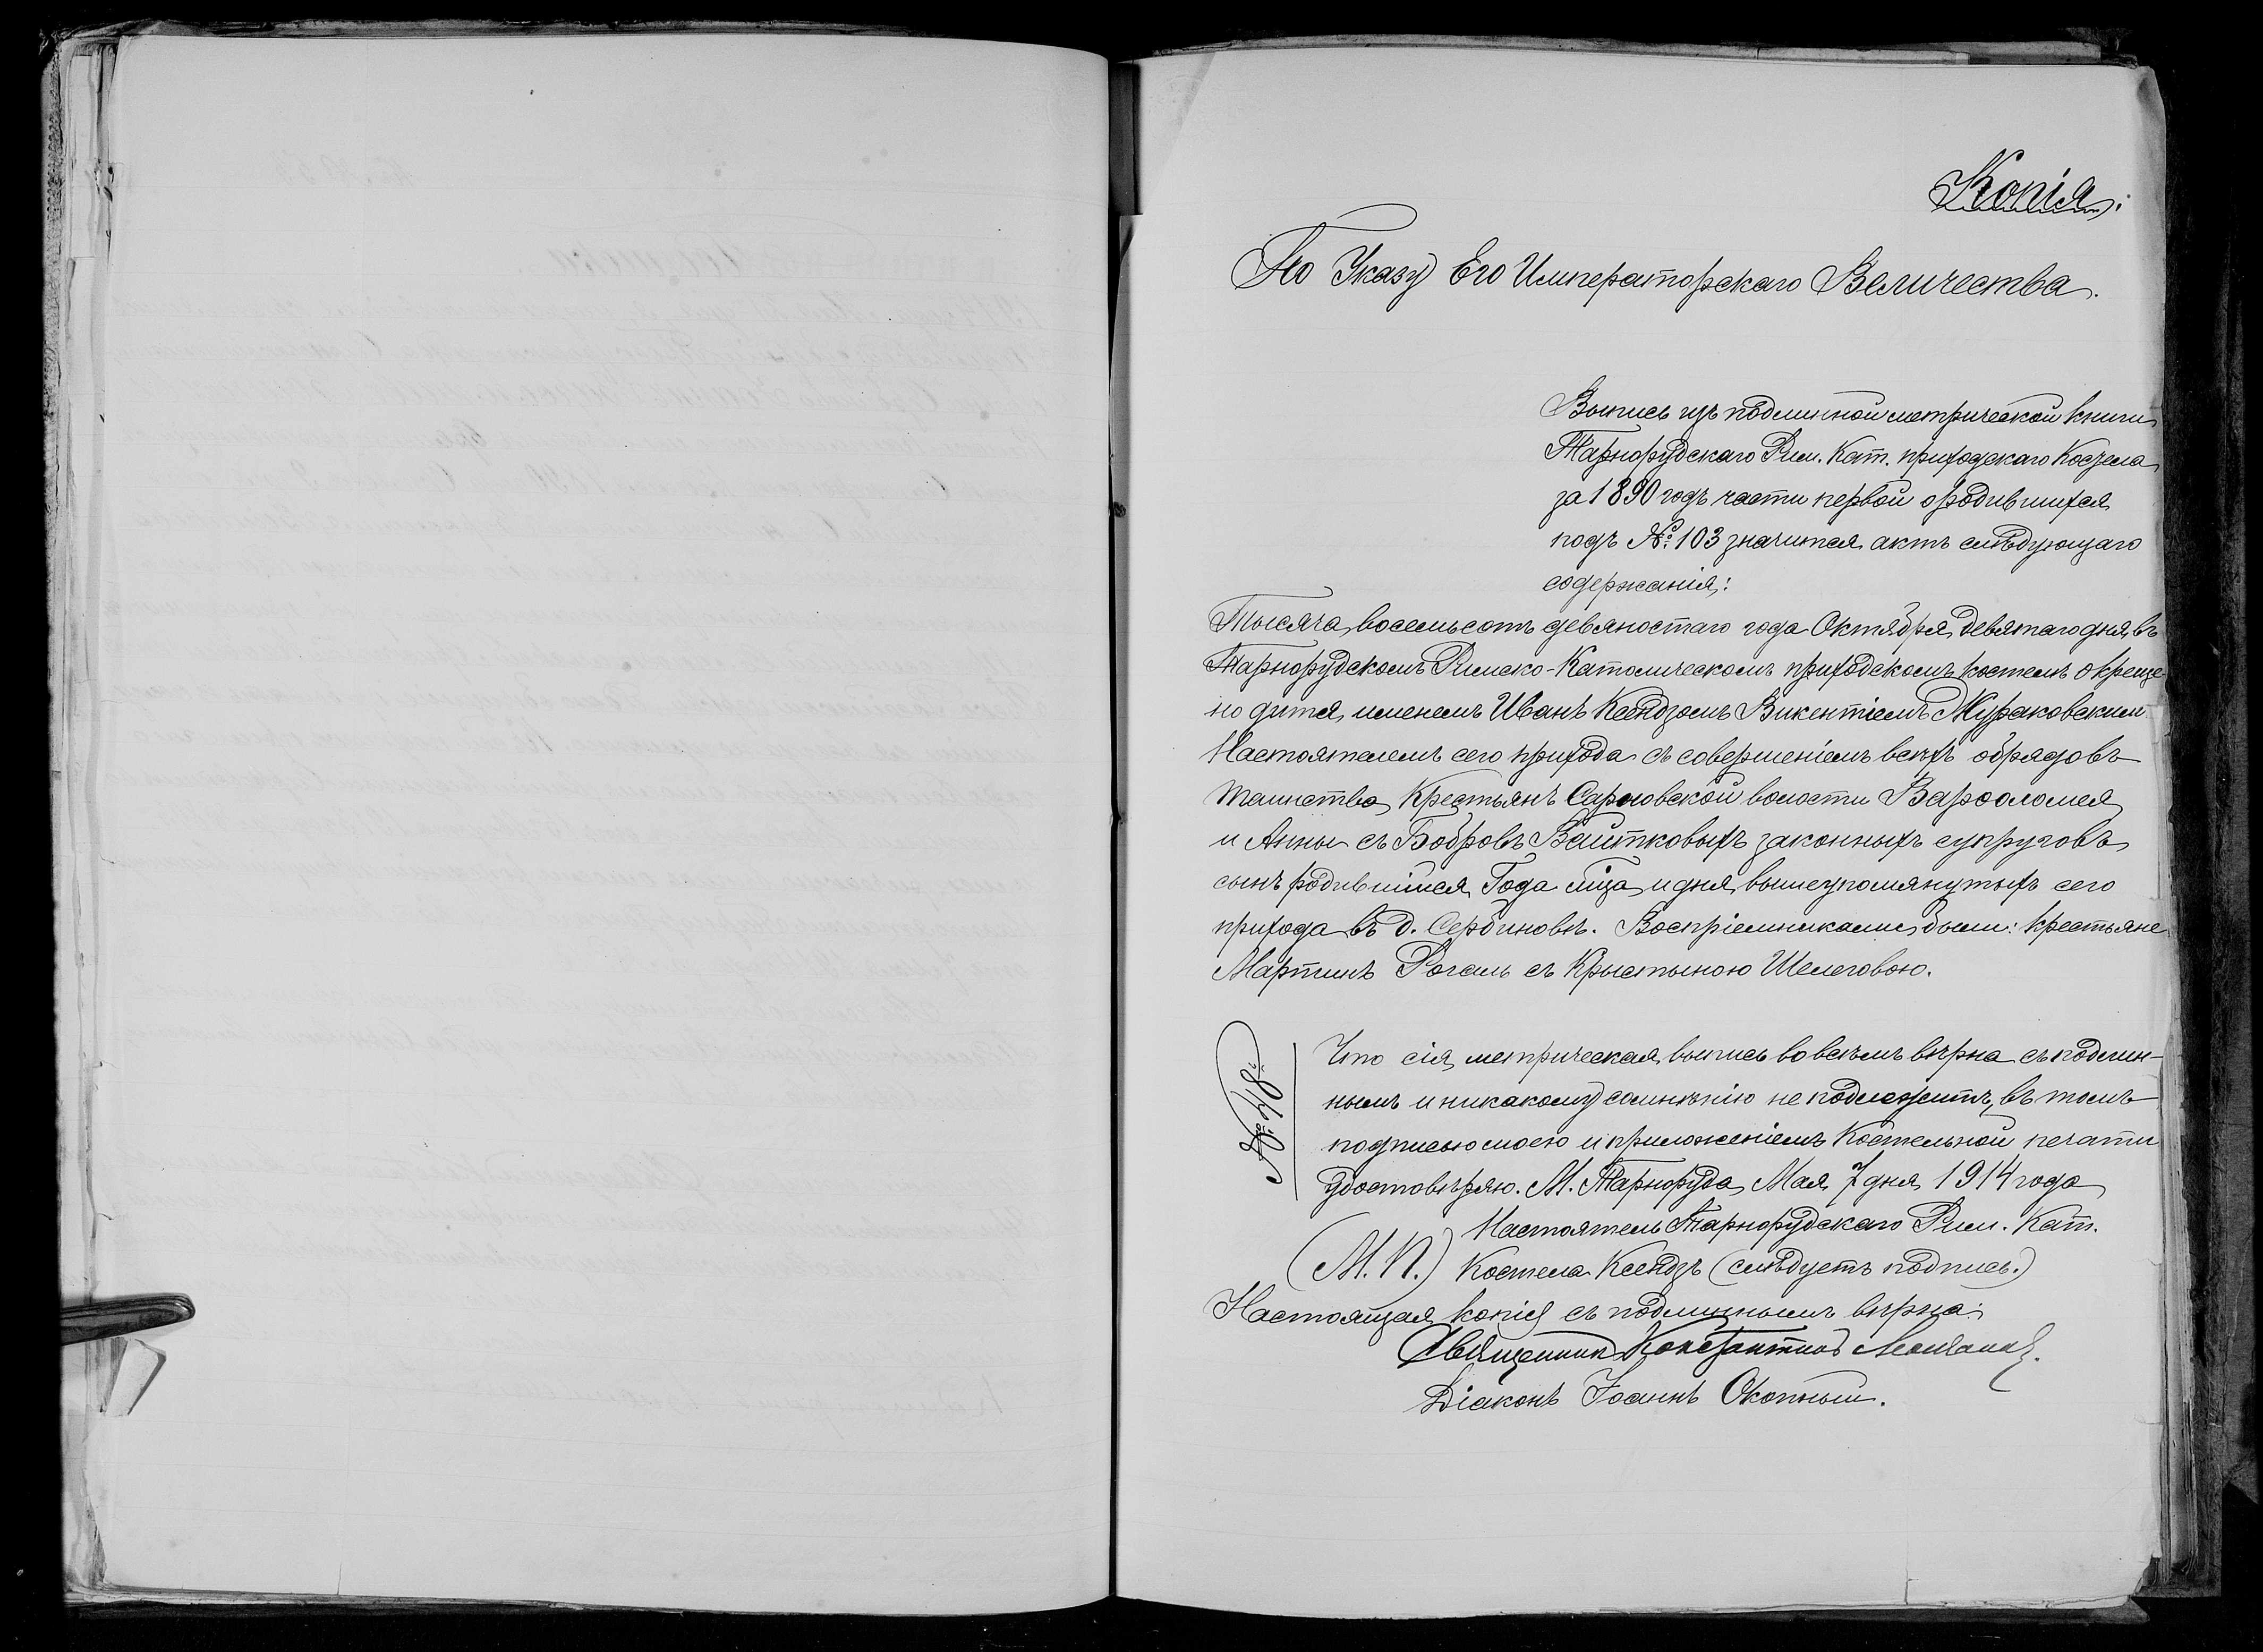 Копія.
По Указу Его Императорскаго Величества.
Выпись изъ подлинной метрической книги
Тарнорудскаго Рим. Кат. приходскаго Костела
за 1890 годъ части первой о родившихся
подъ №: 103 значится актъ слѣдующаго
содержанія:
Тысяча восемьсотъ девяностаго года Октября девятаго дня въ
Тарнорудскомъ Римско-Католическомъ приходскомъ костелѣ окреще
но дитя именемъ Иванъ Ксендзомъ Викентіемъ Жураковскимъ
Настоятелемъ сего прихода съ совершеніемъ всѣхъ обрядовъ
таинства Крестьянъ Сарновской волости Варфоломея
и Анны съ Бобровъ Войтковыхъ законныхъ супруговъ
сынъ родившійся Года м̃ца и дня вышеупомянутыхъ сего
прихода въ д. Сербиновкѣ. Воспріемниками были: Крестьяне
Мартинъ Рогаль съ Крыстыною Шелеговою.
№: 48й
Что сія метрическая выпись во всѣмъ вѣрна съ подлин-
нымъ и никакому сомнѣнію не подлежитъ, въ томъ
подписью моею и приложеніемъ Костельной печати
удостовѣряю. М. Тарноруда, Мая 7 дня 1914 года
Настоятель Тарнорудскаго Рим. Кат.
(М. П.) Костела Ксендзъ (слѣдуетъ подпись.)
Настоящая копія съ подлиннымъ вѣрна:
Священникъ Константинъ
Діаконъ Іоаннъ Окопный.